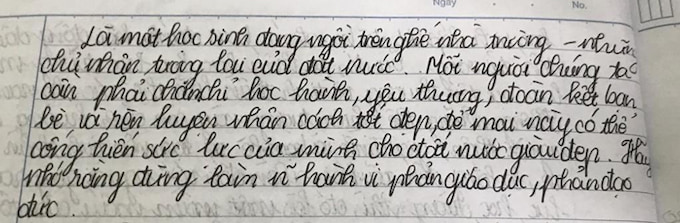 Ngày No.
Là một học sinh đang ngồi trên ghế nhà trường - những
chủ nhân tương lai của đất nước. Mỗi người chúng ta
cần phải chăm chỉ học hành, yêu thương, đoàn kết bạn
bè và rèn luyện nhân cách tốt đẹp, để mai này có thể
cống hiến sức lực của mình cho đất nước giàu đẹp. Hãy
nhớ rằng đừng làm hành vi phản giáo dục, phản đạo
đức.